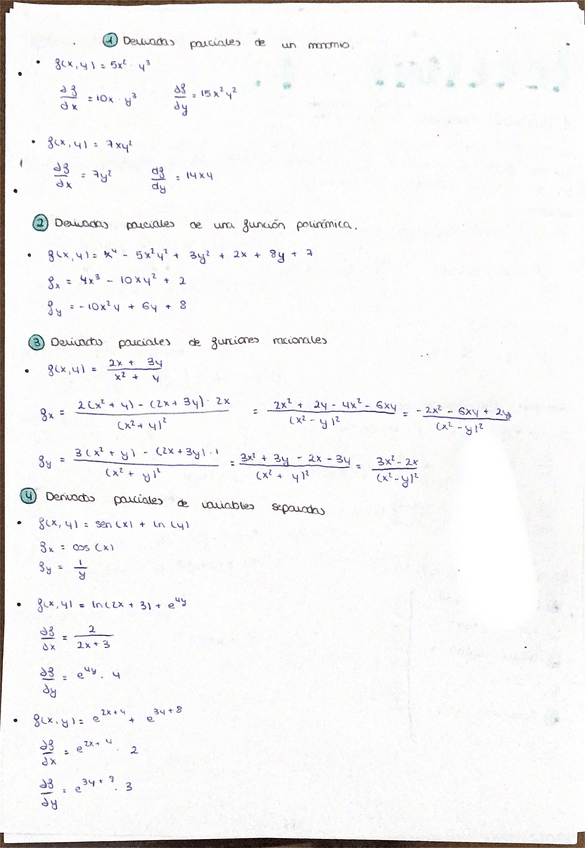 1 Derivadas parciales de un monomio.
• f(x,y) = 5x² · y³
∂f/∂x = 10x · y³   ∂f/∂y = 15x²y²
• f(x,y) = 7xy²
∂f/∂x = 7y²   ∂f/∂y = 14xy
2 Derivadas parciales de una función polinómica.
• f(x,y) = x⁴ - 5x²y² + 3y² + 2x + 8y + 7
fx = 4x³ - 10xy² + 2
fy = -10x²y + 6y + 8
3 Derivadas parciales de funciones racionales
• f(x,y) = (2x + 3y)/(x² + y)
fx = (2(x² + y) - (2x + 3y) · 2x)/(x² + y)² = (2x² + 2y - 4x² - 6xy)/(x² - y)² = (-2x² - 6xy + 2y)/(x² - y)²
fy = (3(x² + y) - (2x + 3y) · 1)/(x² + y)² = (3x² + 3y - 2x - 3y)/(x² + y)² = (3x² - 2x)/(x² - y)²
4 Derivadas parciales de variables separadas
• f(x,y) = sen(x) + ln(y)
fx = cos(x)
fy = 1/y
• f(x,y) = ln(2x + 3) + e^(4y)
∂f/∂x = 2/(2x + 3)
∂f/∂y = e^(4y) · 4
• f(x,y) = e^(2x+4) + e^(3y+8)
∂f/∂x = e^(2x+4) · 2
∂f/∂y = e^(3y+8) · 3